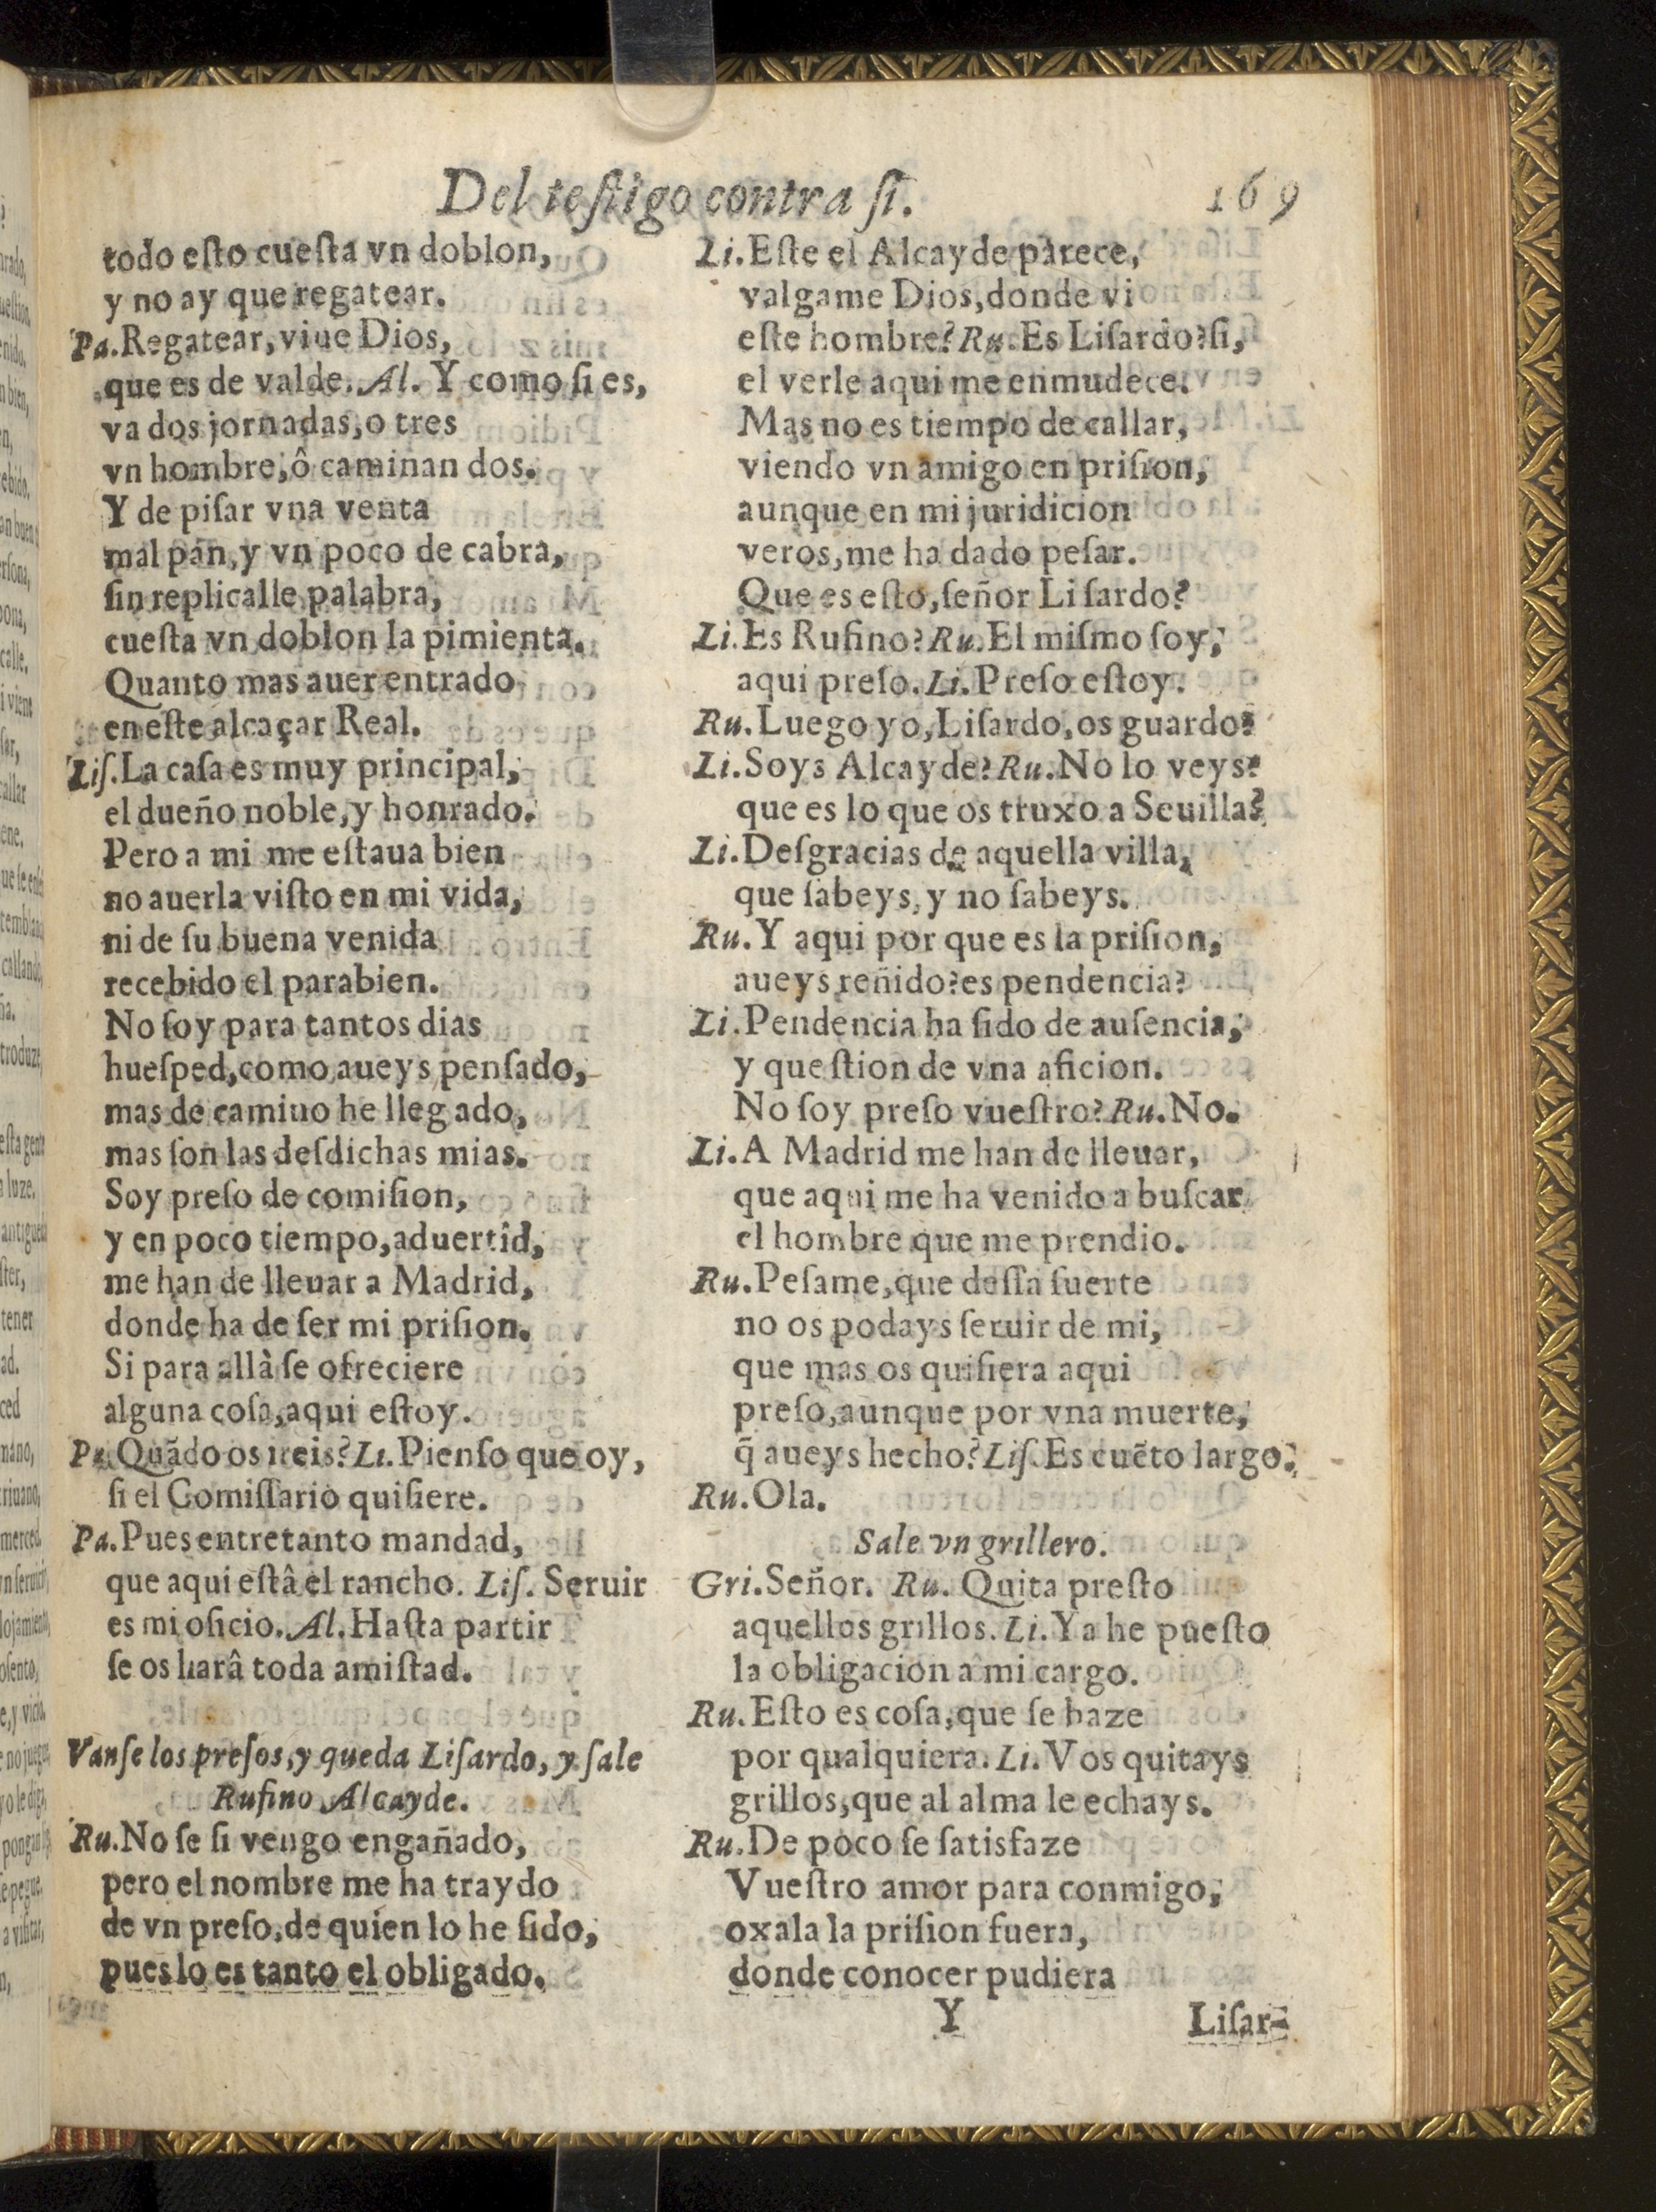 Del teſtigo contra ſi. 169
todo eſto cueſta vn doblon,
y no ay que regatear.
Pa. Regatear, viue Dios,
que es de valde. Al. Y como ſi es,
va dos jornadas, o tres
vn hombre, ô caminan dos.
Y de piſar vna venta
mal pan, y vn poco de cabra,
ſin replicalle palabra,
cueſta vn doblon la pimienta.
Quanto mas auer entrado
en eſte alcaçar Real.
Liſ. La caſa es muy principal,
el dueño noble, y honrado.
Pero a mi me eſtaua bien
no auerla viſto en mi vida,
ni de ſu buena venida
recebido el parabien.
No ſoy para tantos dias
hueſped, como aueys penſado,
mas de camino he llegado,
mas ſon las deſdichas mias.
Soy preſo de comiſion,
y en poco tiempo, aduertid,
me han de lleuar a Madrid,
donde ha de ſer mi priſion.
Si para allà ſe ofreciere
alguna coſa, aqui eſtoy.
Pa. Quãdo os ireis? Li. Pienſo que oy,
ſi el Comiſſario quiſiere.
Pa. Pues entretanto mandad,
que aqui eſtâ el rancho. Liſ. Seruir
es mi oficio. Al. Haſta partir
ſe os harâ toda amiſtad.
Vanſe los preſos, y queda Liſardo, y ſale
Rufino Alcayde.
Ru. No ſe ſi vengo engañado,
pero el nombre me ha traydo
de vn preſo, de quien lo he ſido,
pues lo es tanto el obligado.
Li. Eſte el Alcayde parece,
valgame Dios, donde vi
eſte hombre? Ru. Es Liſardo? ſi,
el verle aqui me enmudece.
Mas no es tiempo de callar,
viendo vn amigo en priſion,
aunque en mi juridicion
veros, me ha dado peſar.
Que es eſto, ſeñor Liſardo?
Li. Es Rufino? Ru. El miſmo ſoy,
aqui preſo. Li. Preſo eſtoy.
Ru. Luego yo, Liſardo, os guardo?
Li. Soys Alcayde? Ru. No lo veys?
que es lo que os truxo a Seuilla?
Li. Deſgracias de aquella villa,
que ſabeys, y no ſabeys.
Ru. Y aqui por que es la priſion,
aueys reñido? es pendencia?
Li. Pendencia ha ſido de auſencia,
y queſtion de vna aficion.
No ſoy preſo vueſtro? Ru. No.
Li. A Madrid me han de lleuar,
que aqui me ha venido a buſcar
el hombre que me prendio.
Ru. Peſame, que deſſa ſuerte
no os podays ſeruir de mi,
que mas os quiſiera aqui
preſo, aunque por vna muerte,
q̃ aueys hecho? Liſ. Es cuẽto largo.
Ru. Ola.
Sale vn grillero.
Gri. Señor. Ru. Quita preſto
aquellos grillos. Li. Ya he pueſto
la obligacion a mi cargo.
Ru. Eſto es coſa, que ſe haze
por qualquiera. Li. Vos quitays
grillos, que al alma le echays.
Ru. De poco ſe ſatisfaze
Vueſtro amor para conmigo,
oxala la priſion fuera,
donde conocer pudiera
Y Liſar-